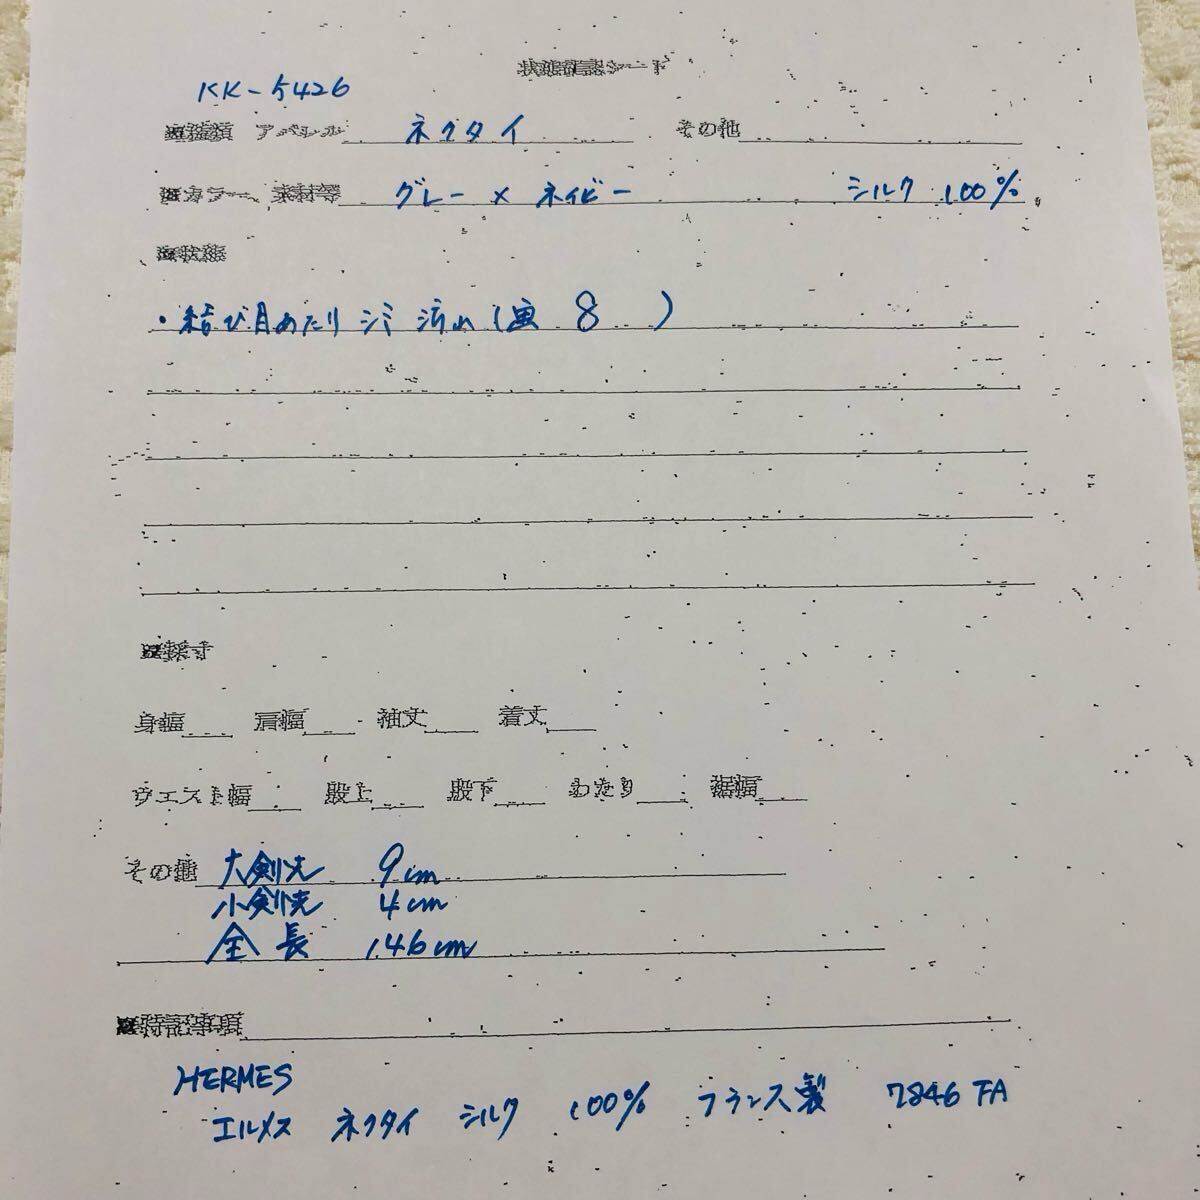 状態確認シート
KK-5426
アパレル ネクタイ その他
カラー、素材等 グレー × ネイビー シルク 100%
■状態
・結び目あたり シミ 汚れ (画 8 )
■採寸
身幅 肩幅 袖丈 着丈
ウエスト幅 股上 股下 わたり 裾幅
その他 大剣先 9cm
小剣先 4cm
全長 146cm
■特記事項
HERMES
エルメス ネクタイ シルク 100% フランス製 7846 FA